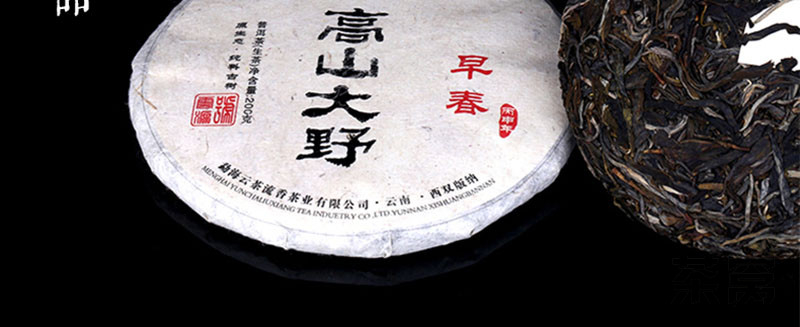 品
高山大野
早春
丙申年
普洱茶(生茶)净含量:200克
原生态·纯料古树
勐海云茶流香茶业有限公司·云南·西双版纳
MENGHAI YUNCHALIUXIANG TEA INDUETRY CO.,LTD YUNNAN XISHUANGBANNAN